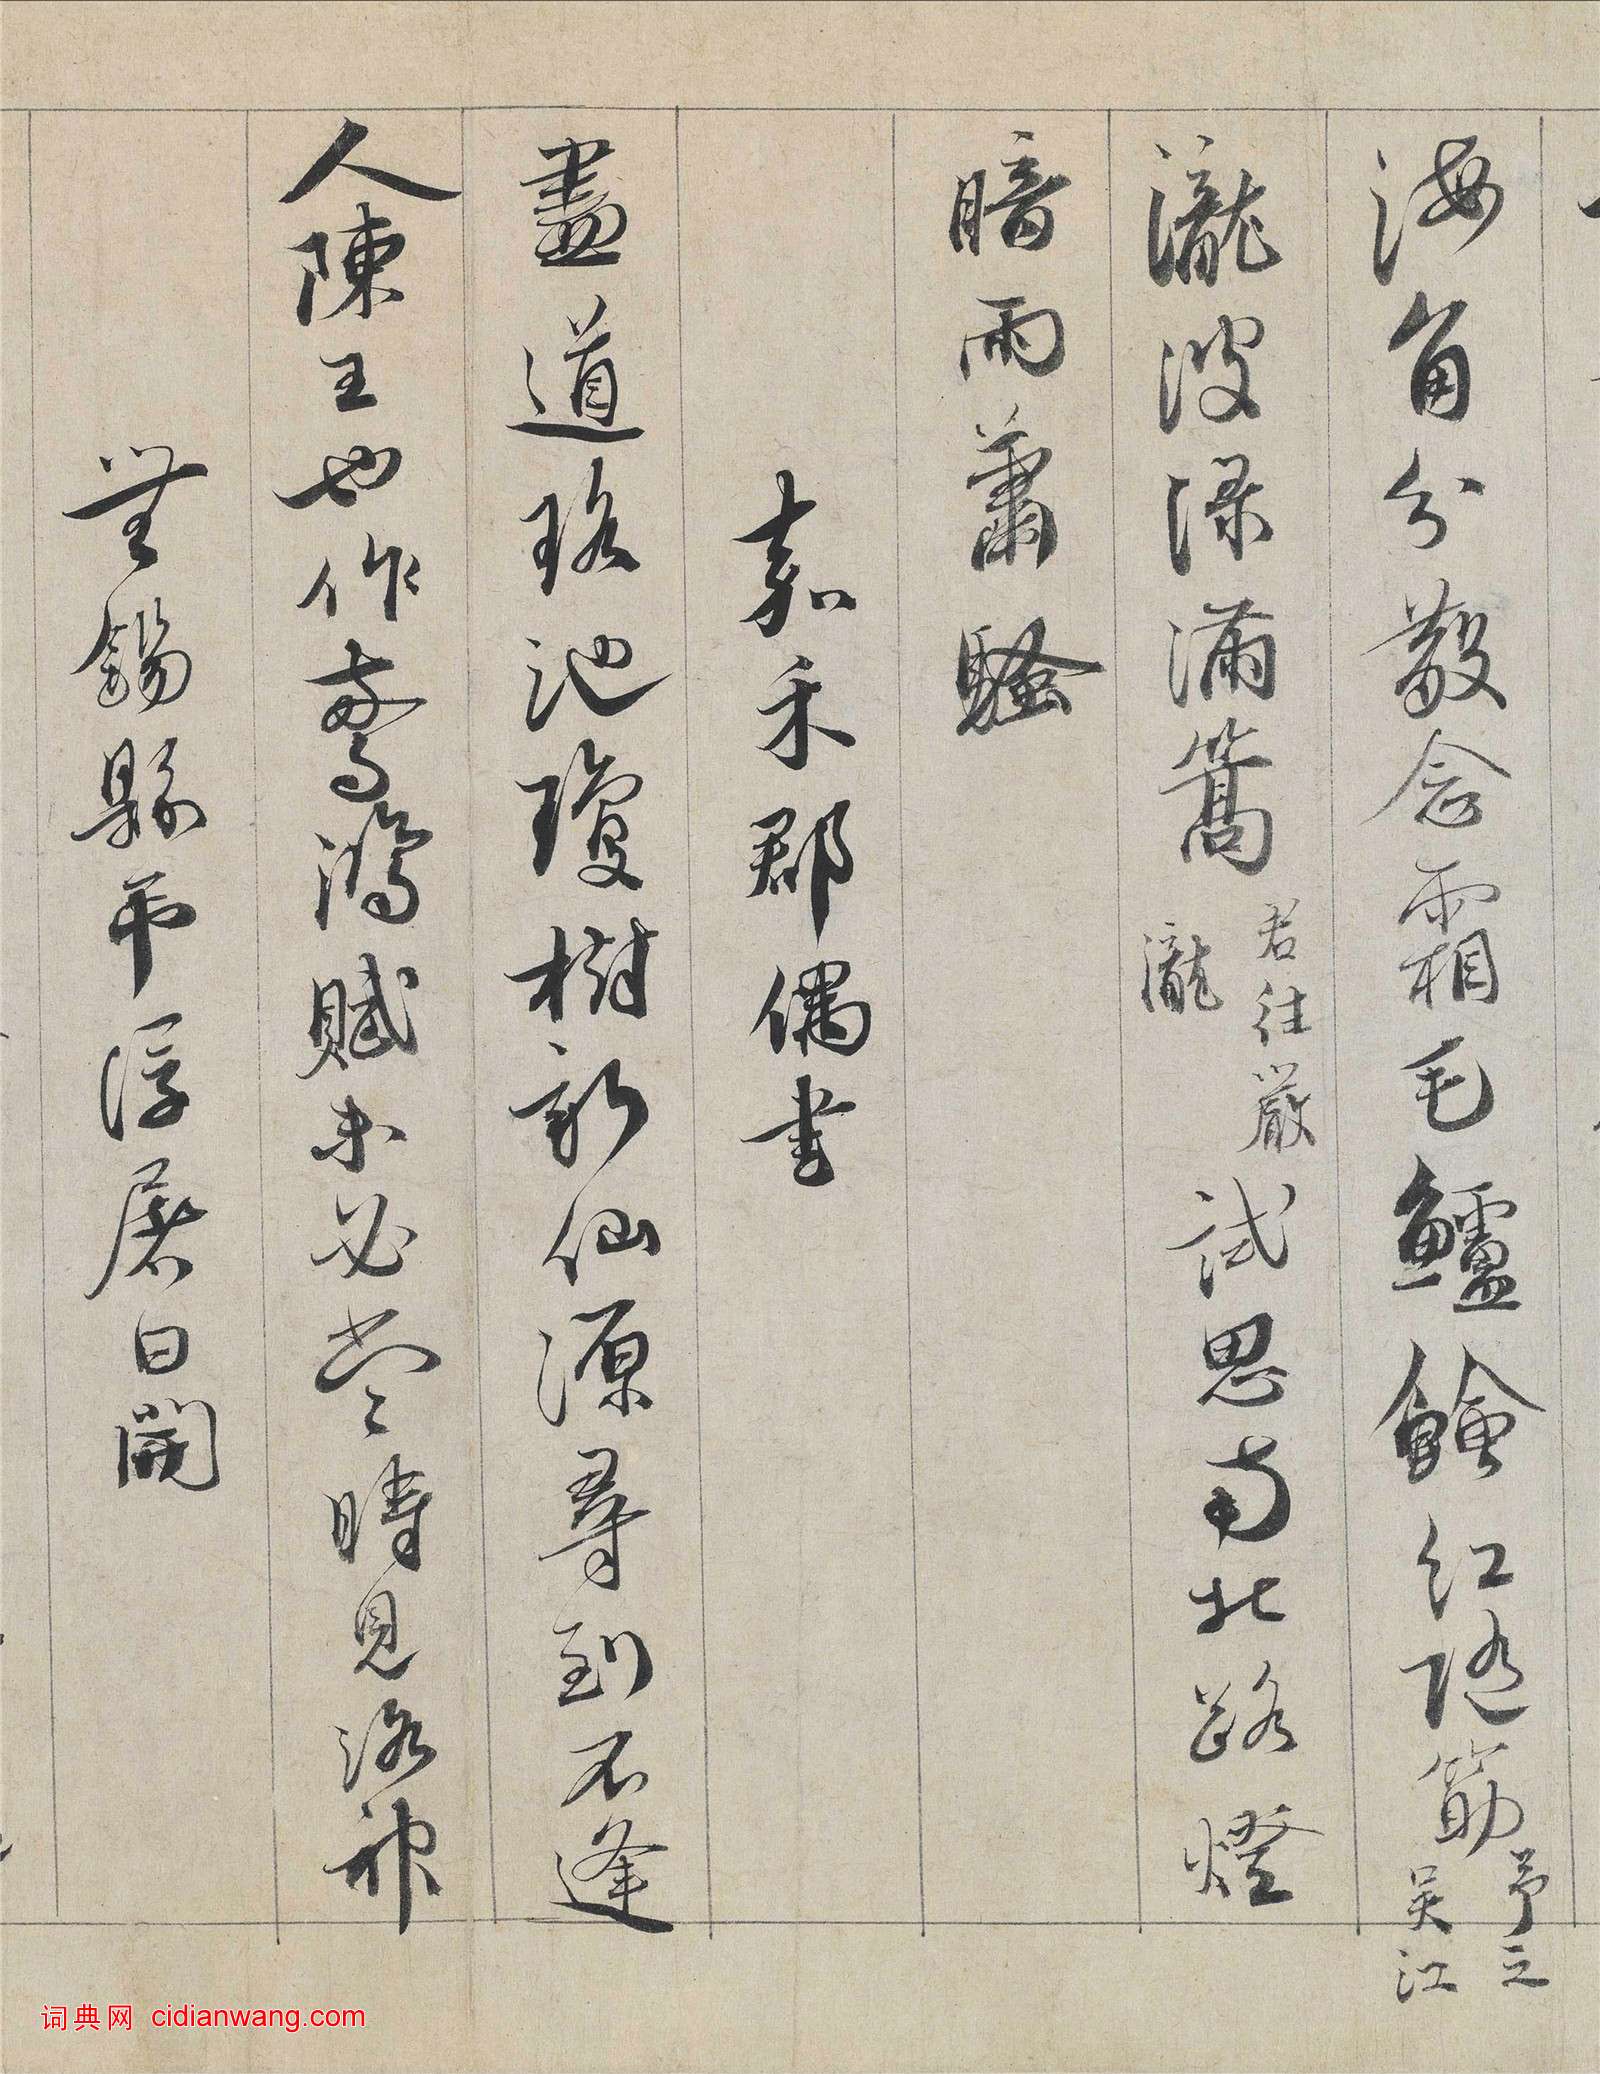 海角分散念霜毛鱸鱠紅隨筯予之吳江
瀧波渌滿篙君往嚴瀧試思南北路燈
暗雨蕭騷
嘉禾郡偶書
盡道瑤池瓊樹新仙源尋到不逢
人陳王也作驚鴻賦未必當時見洛神
無錫縣弔浮屠日開
词典网 cidianwang.com